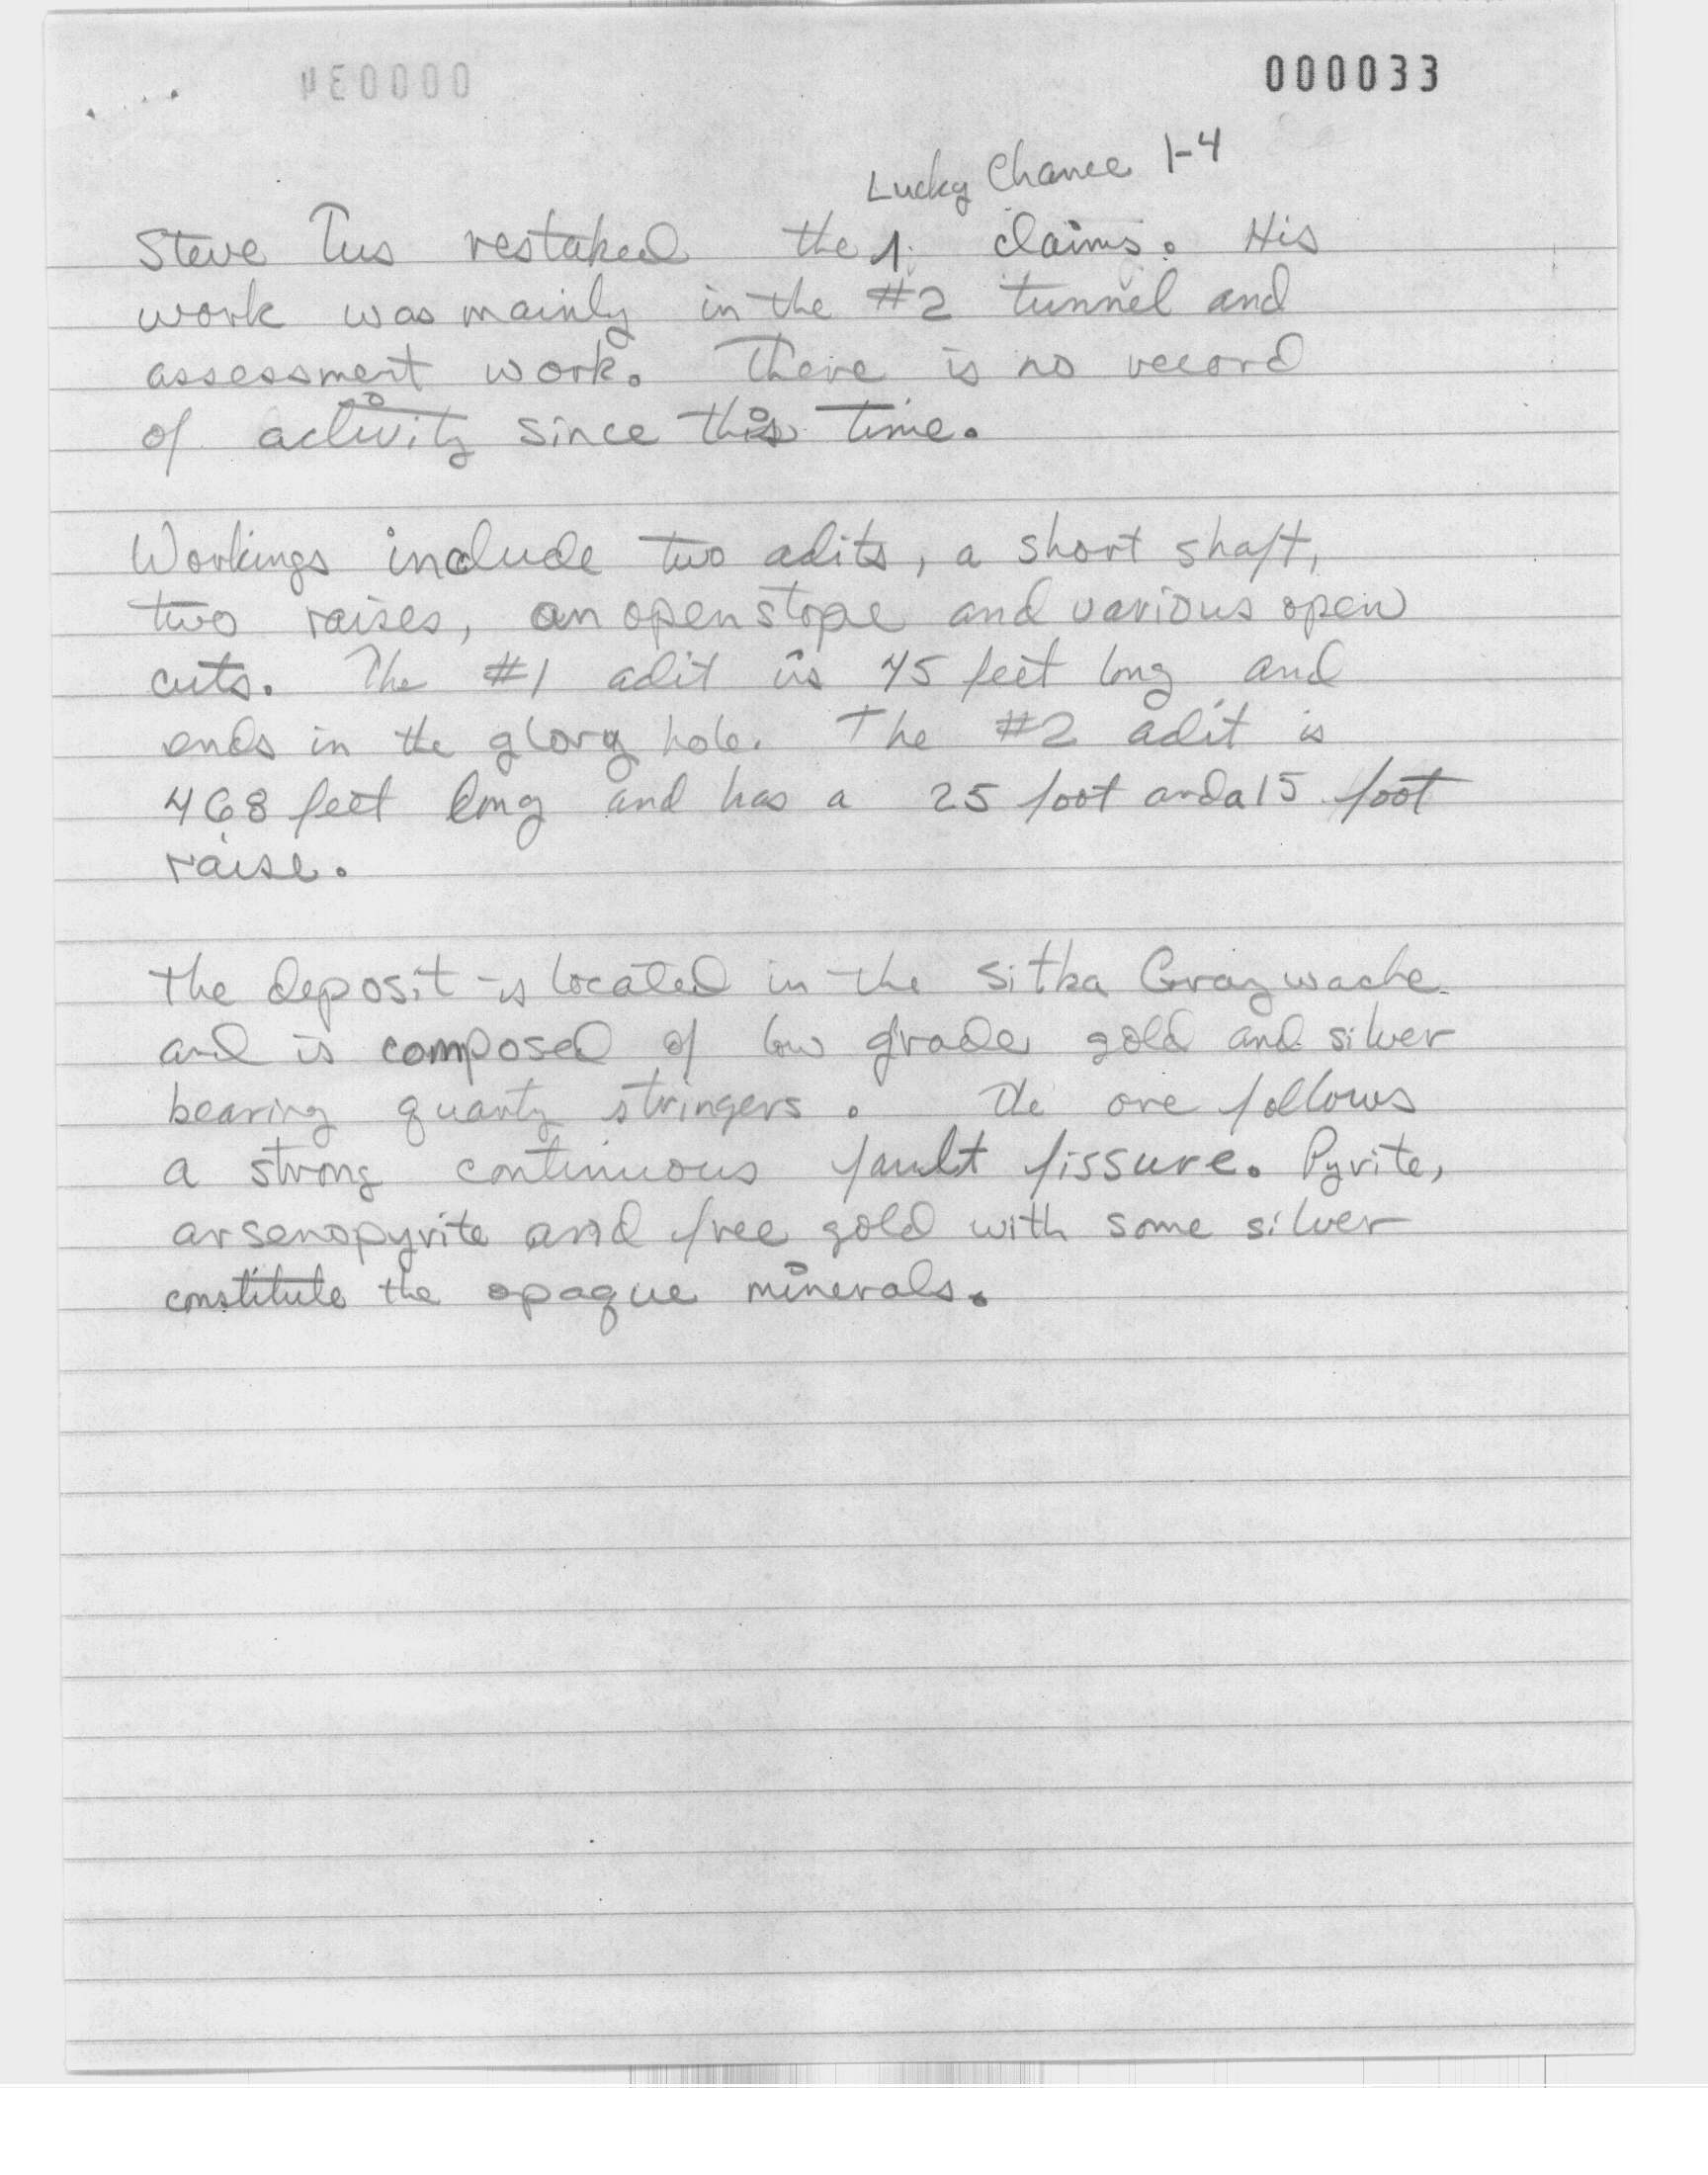 000033
Lucky Chance 1-4
Steve Tus restaked the claims. His
work was mainly in the #2 tunnel and
assessment work. There is no record
of activity since this time.
Workings include two adits, a short shaft,
two raises, an open stope and various open
cuts. The #1 adit is 45 feet long and
ends in the glory hole. The #2 adit is
468 feet long and has a 25 foot and a 15 foot
raise.
The deposit is located in the Sitka Graywacke
and is composed of low grade gold and silver
bearing quartz stringers. The ore follows
a strong continuous fault fissure. Pyrite,
arsenopyrite and free gold with some silver
constitute the opaque minerals.